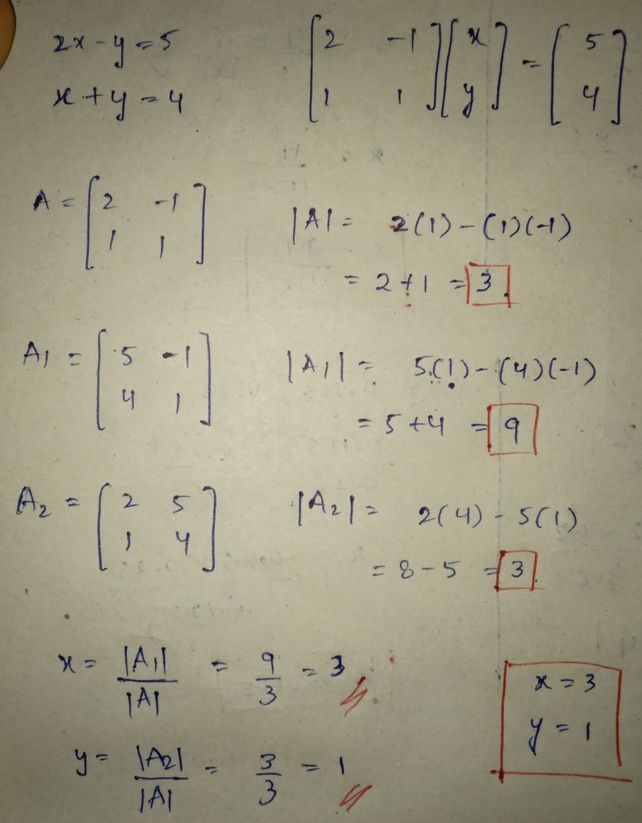 2x - y = 5
x + y = 4
[2 -1
1 1] [x
y] = [5
4]
A = [2 -1
1 1]
|A| = 2(1) - (1)(-1)
= 2 + 1 = 3
A1 = [5 -1
4 1]
|A1| = 5(1) - (4)(-1)
= 5 + 4 = 9
A2 = [2 5
1 4]
|A2| = 2(4) - 5(1)
= 8 - 5 = 3
x = |A1| / |A| = 9/3 = 3
y = |A2| / |A| = 3/3 = 1
x = 3
y = 1